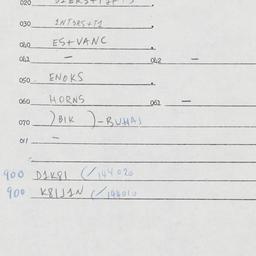 020
030 INTSRS+T1
040 ES+VANC
041 — 042 —
050 ENOKS
060 HORNS 061 —
070 ) BIK ) - BUHAJ
011 —
900 D1K81 (/144.020
900 K8IJ1N (/